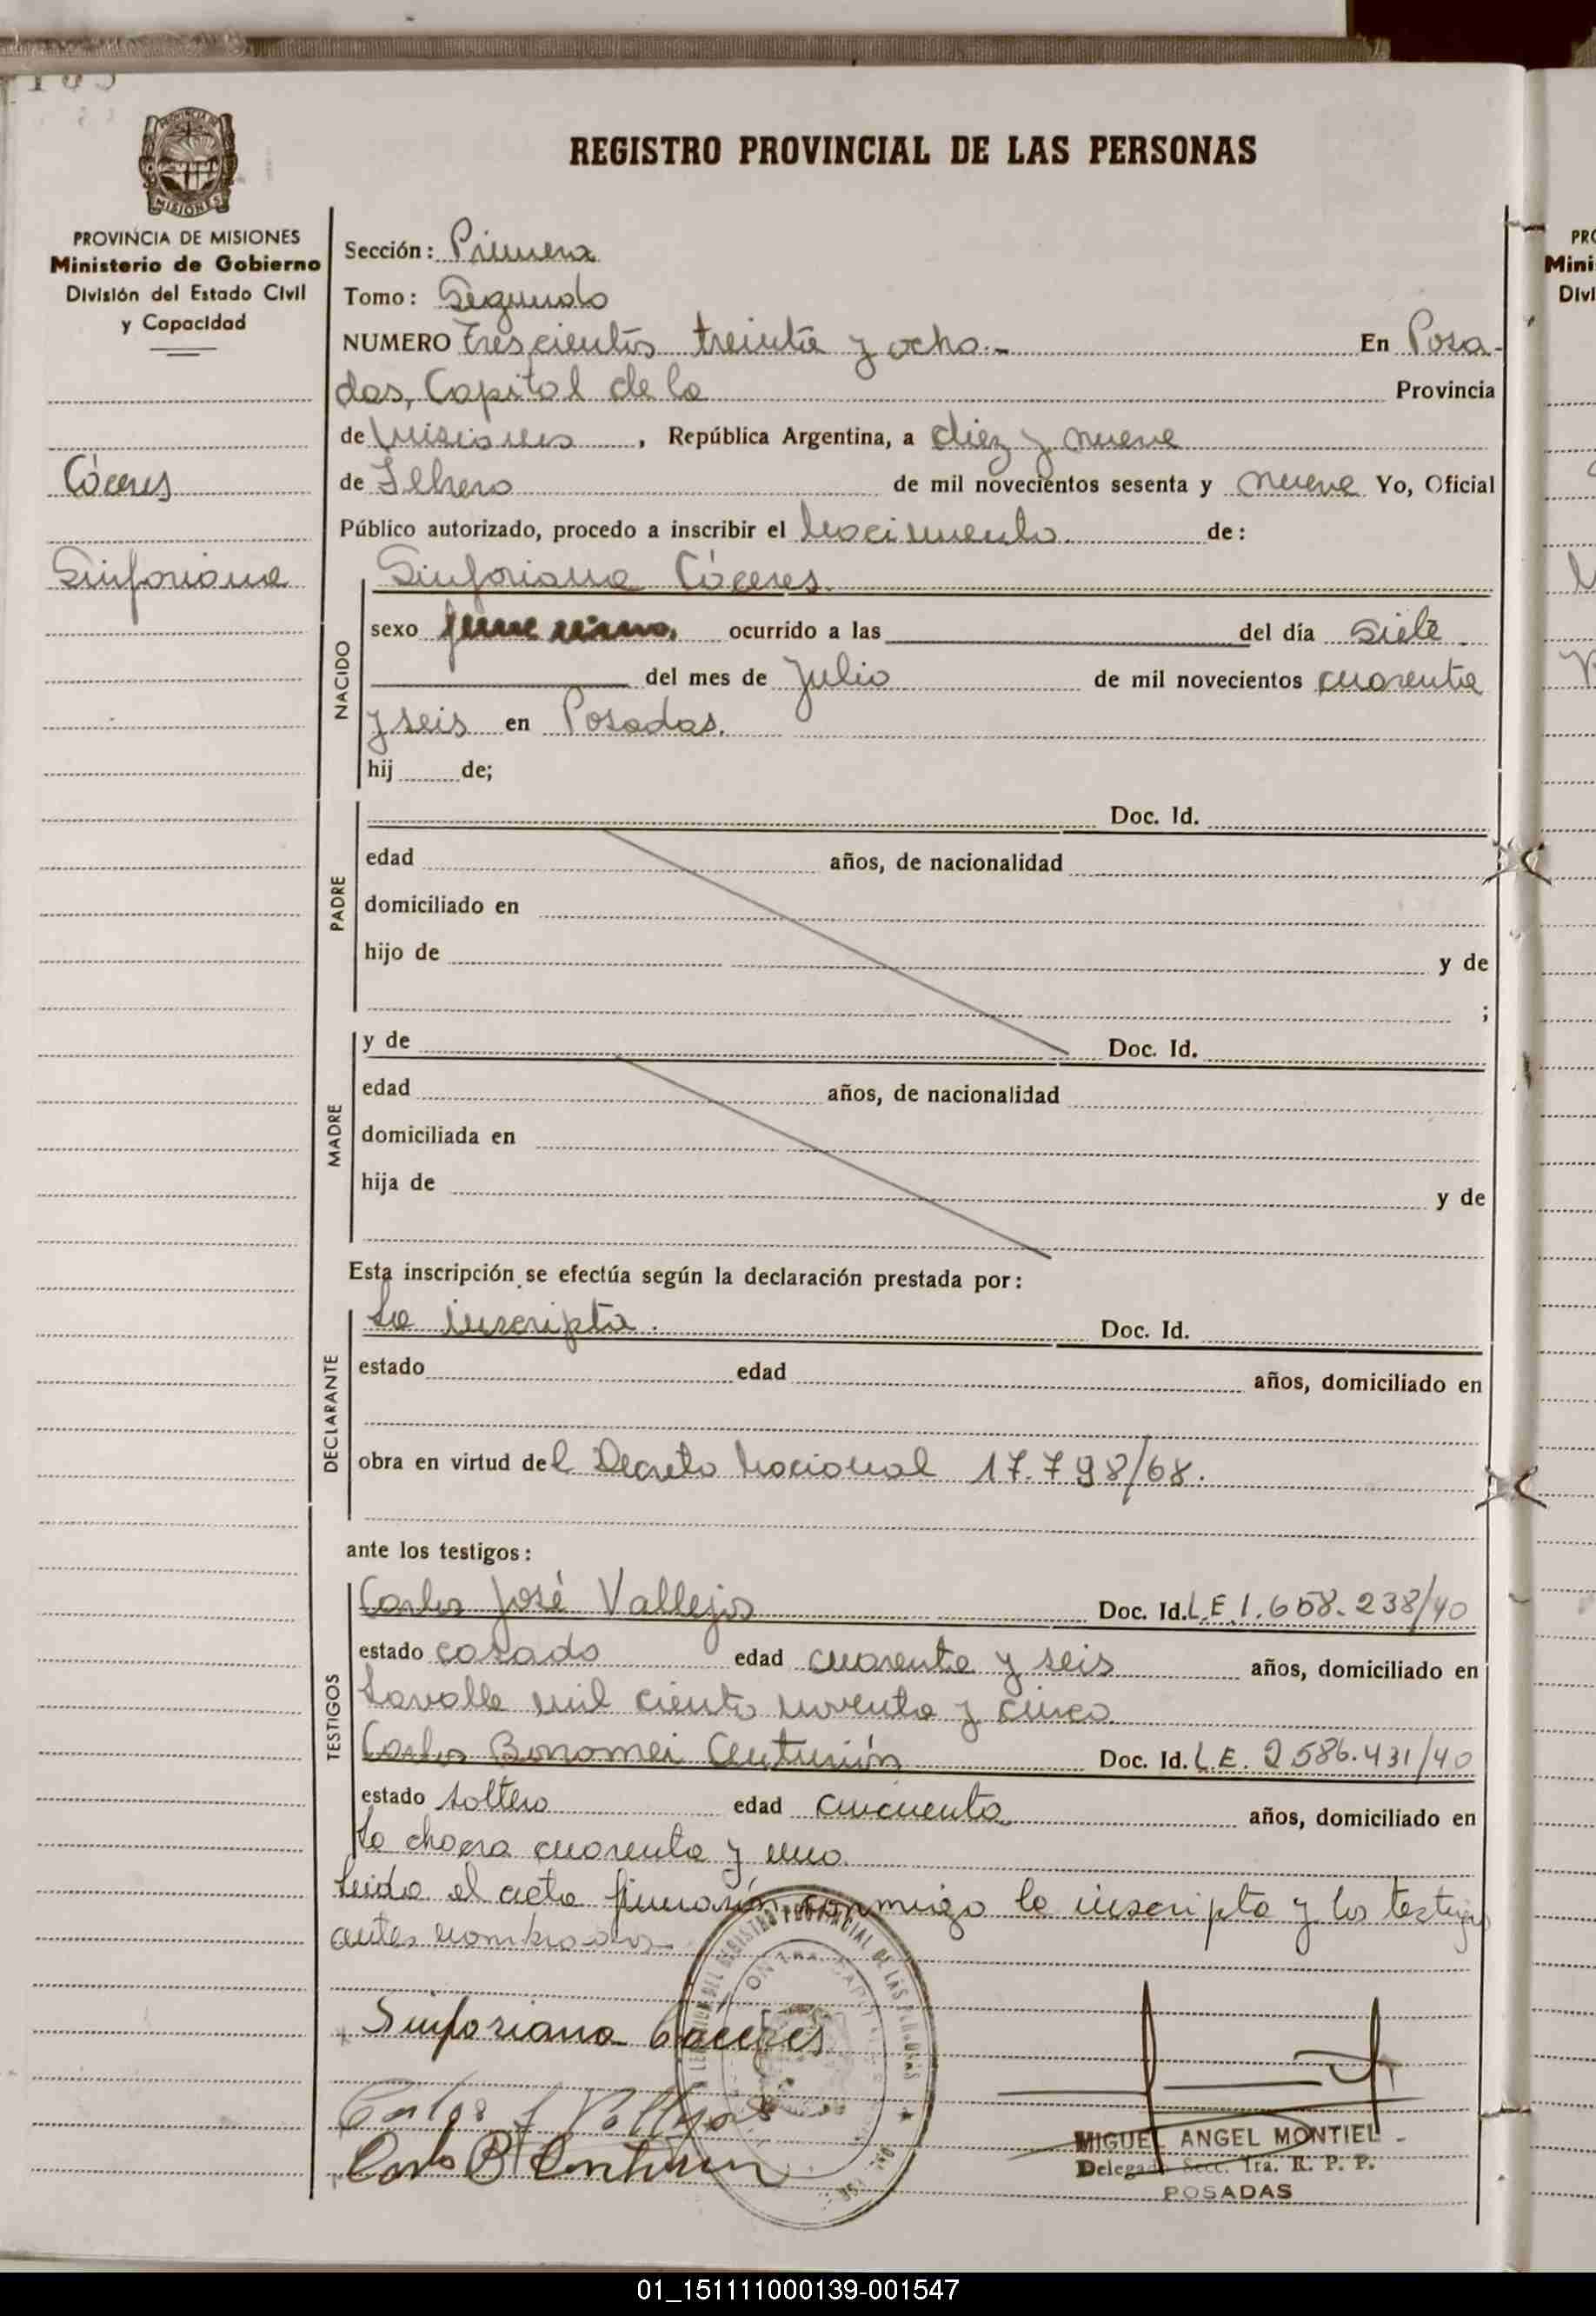 REGISTRO PROVINCIAL DE LAS PERSONAS
MISIONES
PROVINCIA DE MISIONES
Ministerio de Gobierno
División del Estado Civil
y Capacidad
Cáceres
Sinforiana
Sección: Primera
Tomo: Segundo
NUMERO Trescientos treinta y ocho.- En Posa-
das, Capital de la Provincia
de Misiones, República Argentina, a diez y nueve
de Febrero de mil novecientos sesenta y nueve Yo, Oficial
Público autorizado, procedo a inscribir el Nacimiento. de:
NACIDO
Sinforiana Cáceres.
sexo femenino, ocurrido a las del día siete
del mes de Julio de mil novecientos cuarenta
y seis en Posadas.
hij de;
PADRE
Doc. Id.
edad años, de nacionalidad
domiciliado en
hijo de y de
;
MADRE
y de Doc. Id.
edad años, de nacionalidad
domiciliada en
hija de y de
Esta inscripción se efectúa según la declaración prestada por:
DECLARANTE
La inscripta. Doc. Id.
estado edad años, domiciliado en
obra en virtud del Decreto Nacional 17.798/68.
ante los testigos:
TESTIGOS
Carlos José Vallejos Doc. Id. L.E. 1.658.238/40
estado casado edad cuarenta y seis años, domiciliado en
Lavalle mil ciento noventa y cinco
Carlos Borromei Centurión Doc. Id. L.E. 2586.431/40
estado soltero edad cincuenta años, domiciliado en
La chacra cuarenta y uno.
Leida el acta firmarón conmigo la inscripta y los testigos
antes nombrados
Sinforiana Caceres
Carlos J Vallejos
Carlos B Centurion
REGISTRO PROVINCIAL DE LAS PERSONAS
MIGUEL ANGEL MONTIEL
Delegado Secc. 1ra. R. P. P.
POSADAS
01_151111000139-001547